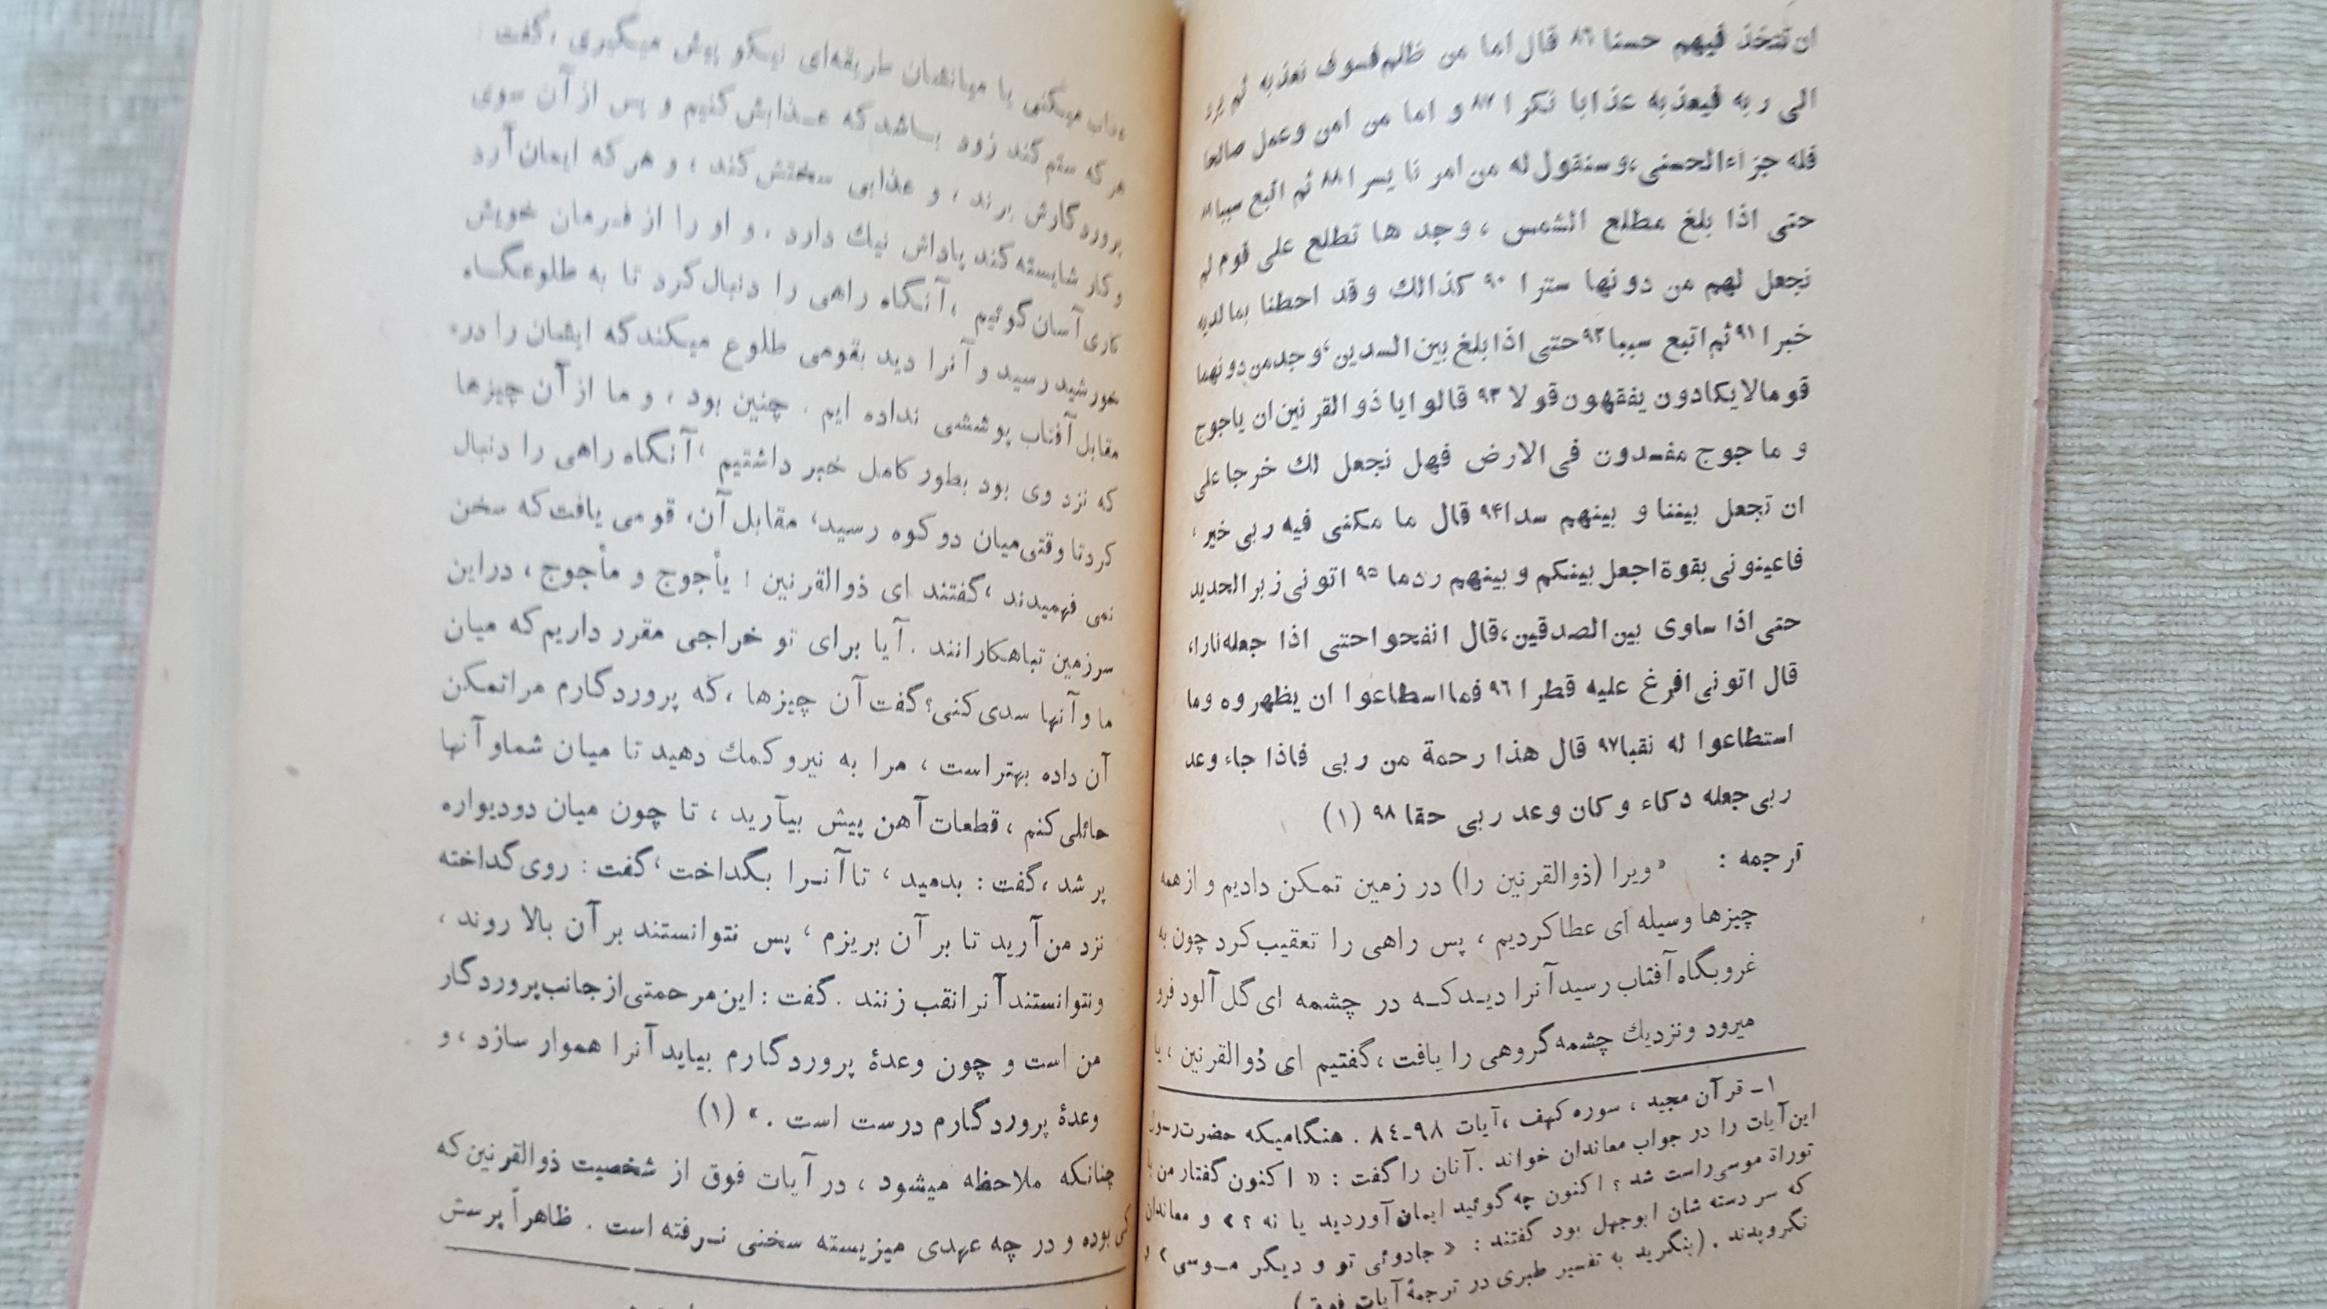 ان تتخذ فیهم حسنا ۸۶ قال اما من ظلم فسوف نعذبه ثم یرد
الی ربه فیعذبه عذابا نکرا ۸۷ و اما من امن وعمل صالحا
فله جزاءالحسنی،وسنقول له من امر نا یسرا ۸۸ ثم اتبع سببا ۸۹
حتی اذا بلغ مطلع الشمس ، وجد ها تطلع علی قوم لم
نجعل لهم من دونها سترا ۹۰ کذالك وقد احطنا بما لدیه
خبرا ۹۱ ثم اتبع سببا ۹۲ حتی اذا بلغ بین السدین،وجدمن دونهما
قومالایکادون یفقهون قولا ۹۳ قالوا یا ذوالقرنین ان یاجوج
و ماجوج مفسدون فی الارض فهل نجعل لك خرجا علی
ان تجعل بیننا و بینهم سدا ۹۴ قال ما مکنی فیه ربی خیر ،
فاعینونی بقوة اجعل بینکم وبینهم ردما ۹۵ اتونی زبر الحدید
حتی اذا ساوی بین الصدقین،قال انفحوا حتی اذا جعله نارا،
قال اتونی افرغ علیه قطرا ۹۶ فما اسطاعوا ان یظهروه وما
استطاعوا له نقبا ۹۷ قال هذا رحمة من ربی فاذا جاء وعد
ربی جعله دکاء وکان وعد ربی حقا ۹۸ (۱)
ترجمه : « ویرا (ذوالقرنین را) در زمین تمکن دادیم و از همه
چیزها وسیله ای عطا کردیم ، پس راهی را تعقیب کرد چون به
غروبگاه آفتاب رسید آنرا دیـدکـه در چشمه ای گل آلود فرو
میرود ونزدیك چشمه گروهی را یافت ، گفتیم ای ذوالقرنین ، یا
۱ـ قرآن مجید ، سوره کهف ،آیات ۹۸ـ۸٤ . هنگامیکه حضرت رسول
این آیات را در جواب معاندان خواند . آنان را گفت : « اکنون گفتار من با
توراة موسی راست شد ؟ اکنون چه گوئید ایمان آوردید یا نه ؟ » و معاندان
که سر دسته شان ابوجهل بود گفتند : « جادوئی تو و دیگر مـوسی » و
نگرویدند . (بنگرید به تفسیر طبری در ترجمۀ آیات فوق)
عذاب میکنی یا میانشان طریقه‌ای نیـکو پیش میـگیری ، گفت :
هر که ستم کند زود بـاشد که عـذابش کنیم و پس از آن سوی
پروردگارش برند ، و عذابی سختش کند ، و هر که ایمان آرد
و کار شایسته کند پاداش نیك دارد ، و او را از فـرمان خویش
کاری آسان گوئیم ، آنگاه راهی را دنبال کرد تا به طلوعگـاه
خورشید رسید و آنرا دید بقومی طلوع میکند که ایشان را در
مقابل آفتاب پوششی نداده ایم . چنین بود ، و ما از آن چیزها
که نزد وی بود بطور کامل خبر داشتیم ، آنگاه راهی را دنبال
کرد تا وقتی میان دو کوه رسید، مقابل آن، قومی یافت که سخن
نمی فهمیدند ،گفتند ای ذوالقرنین ! یأجوج و مأجوج ، دراین
سرزمین تباهکارانند . آیا برای تو خراجی مقرر داریم که میان
ما و آنها سدی کنی؟ گفت آن چیزها ، که پروردگارم مرا تمکن
آن داده بهتر است ، مرا به نیرو کمك دهید تا میان شما و آنها
حائلی کنم ، قطعات آهن پیش بیآرید ، تا چون میان دودیواره
پر شد ، گفت : بدمید ، تا آنـرا بگداخت ، گفت : روی گداخته
نزد من آرید تا بر آن بریزم ، پس نتوانستند بر آن بالا روند ،
ونتوانستند آنرا نقب زنند . گفت : این مرحمتی از جانب پروردگار
من است و چون وعدۀ پروردگارم بیاید آنرا هموار سازد ، و
وعدۀ پروردگارم درست است . » (۱)
چنانکه ملاحظه میشود ، در آیات فوق از شخصیت ذوالقرنین که
کی بوده و در چه عهدی میزیسته سخنی نـرفته است . ظاهراً پرسش